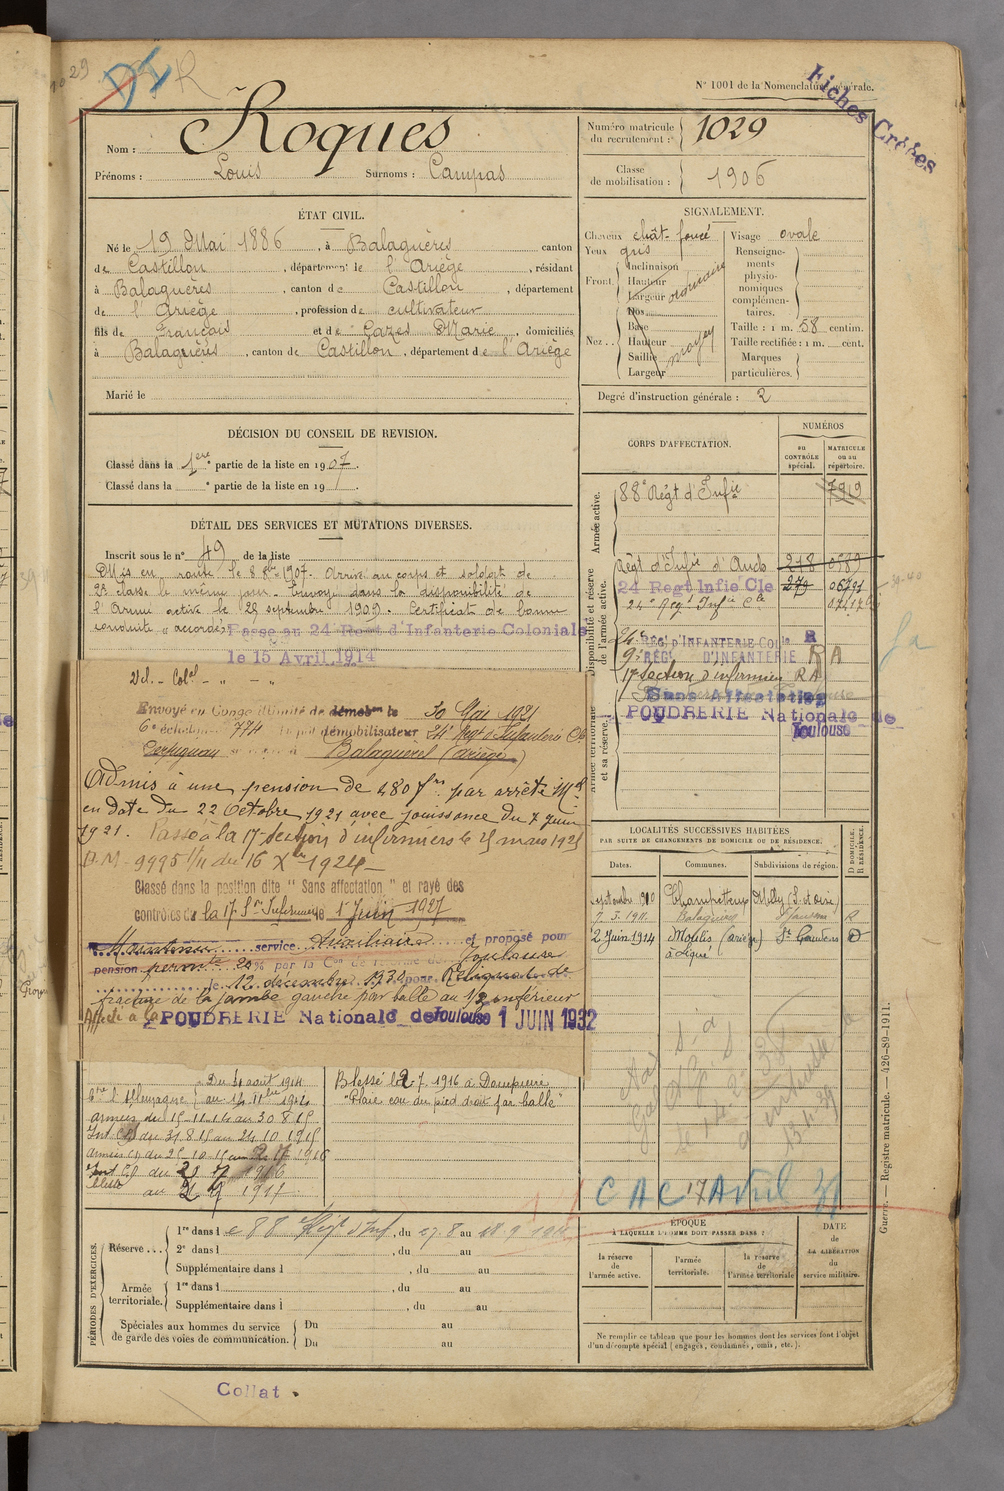 N° 1001 de la Nomenclature générale.
Fiches Créées
Nom : Roques
Prénoms : Louis Surnoms : Campas
Numéro matricule du recrutement : 1029
Classe de mobilisation : 1906
ÉTAT CIVIL.
Né le 19 Mai 1886, à Balaguères canton
de Castillon, département de l'Ariège, résidant
à Balaguères, canton de Castillon, département
de l'Ariège, profession de cultivateur
fils de François et de Cazes Marie, domiciliés
à Balaguères, canton de Castillon, département de l'Ariège
Marié le
SIGNALEMENT.
Cheveux chât. foncé
Yeux gris
Front. Inclinaison
Hauteur
Largeur
ordinaire
Nez.. Dos
Base
Hauteur
Saillie
Largeur
moyen
Visage ovale
Renseignements physionomiques complémentaires.
Taille : 1 m. 58 centim.
Taille rectifiée : 1 m. cent.
Marques particulières.
Degré d'instruction générale : 2
DÉCISION DU CONSEIL DE REVISION.
Classé dans la 1ere partie de la liste en 1907.
Classé dans la ° partie de la liste en 19
DÉTAIL DES SERVICES ET MUTATIONS DIVERSES.
Inscrit sous le n° 49 de la liste
Mis en route le 8 8bre 1907. Arrivé au corps et soldat de
2e classe le même jour. Envoyé dans la disponibilité de
l'Armée active le 25 septembre 1909. Certificat de bonne
conduite "accordé"
Passe au 24 Regt d'Infanterie Coloniale
le 15 Avril 1914
Envoyé en Congé illimité de démobon le 30 Mai 1921
6e échelon 774 démobilisateur 24e Regt Infanterie Cle
Perpignan se retire à Balaguères (Ariège)
Admis à une pension de 480 frs par arrêté Mel
en date du 22 Octobre 1921 avec jouissance du 7 juin
1921. Passé à la 17e Section d'infirmiers le 25 mars 1925
D.M. 9995 1/11 du 16 Xbre 1924
Classé dans la position dite "Sans affectation" et rayé des
contrôles de la 17e Son Infirmiers le 1er Juin 1927
Maintenu service Auxiliaire et proposé pour
pension permte 20% par la Con de réforme de Toulouse
le 12 décembre 1930 pour Reliquat de
fracture de la jambe gauche par balle au 1/3 inférieur
Affecté à la POUDRERIE Nationale de Toulouse 1 JUIN 1932
CORPS D'AFFECTATION.
NUMÉROS
au CONTRÔLE spécial.
MATRICULE ou au répertoire.
Armée active.
88e Régt d'Infie 7919
Disponibilité et réserve de l'armée active.
Régt d'Infie d'Auch 218
24 Regt Infie Cle 279
24e Reg. Infie Cle
24e REG. d'INFANTERIE Colle R
9e REGt D'INFANTERIE RA
17 Section d'infirmiers RA
Armée territoriale et sa réserve.
Sans Affectation
POUDRERIE Nationale de Toulouse
LOCALITÉS SUCCESSIVES HABITÉES
PAR SUITE DE CHANGEMENTS DE DOMICILE OU DE RÉSIDENCE.
Dates. Communes. Subdivisions de région. D. DOMICILE. R. RÉSIDENCE.
Septembre 1910 Champcueil Milly (S. et Oise)
7.5.1911 Balaguères St Gaudens R
2 Juin 1914 Moulis (Ariège) St Gaudens D
à Ligué
Cre l'Allemagne Du 31 août 1914
au 14 11bre 1914
Armées du 15.11.14 au 30.8.15
Int CS du 31.8.15 au 24.10.1915
Armées CD du 25.10.15 au 2.7.1916
Int CS du 2.7.1916
blessé au 21.9.1917
Blessé le 2.7.1916 à Dompierre
"Plaie cou du pied droit par balle"
C A C 17 Avril 31
PÉRIODES D'EXERCICES.
Réserve... 1re dans le 88e Régt d'Inf, du 27.8 au 18.9.1912
2e dans l , du au
Supplémentaire dans l , du au
Armée territoriale. 1re dans l , du au
Supplémentaire dans l , du au
Spéciales aux hommes du service de garde des voies de communication. Du au
Du au
ÉPOQUE
A LAQUELLE L'HOMME DOIT PASSER DANS :
la réserve de l'armée active.
l'armée territoriale.
la réserve de l'armée territoriale
DATE de LA LIBÉRATION du service militaire.
Ne remplir ce tableau que pour les hommes dont les services font l'objet
d'un décompte spécial (engagés, condamnés, omis, etc.).
Guerre. — Registre matricule. — 426-89-1911.
Collat.